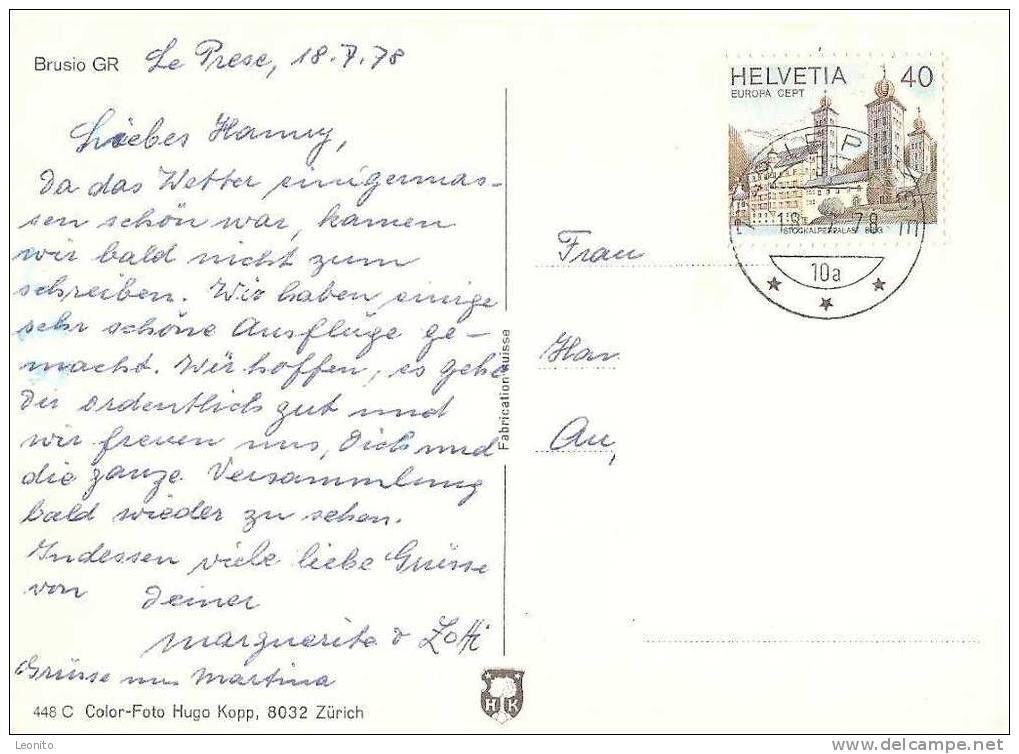 Brusio GR
Le Prese, 18.7.78
Lieber Hanny,
Da das Wetter einigermas-
sen schön war, kamen
wir bald nicht zum
schreiben. Wir haben einige
sehr schöne Ausflüge ge-
macht. Wir hoffen, es gehe
Dir ordentlich gut und
wir freuen uns, Dich und
die ganze Versammlung
bald wieder zu sehen.
Indessen viele liebe Grüsse
von Deiner
Marguerite & Lotti
Grüsse Martina
448 C Color-Foto Hugo Kopp, 8032 Zürich
Fabrication suisse
H K
HELVETIA 40
EUROPA CEPT
STOCKALPERPALAST BRIG
78
10a
Frau
Han
Au,
Leonito
delcampe.net